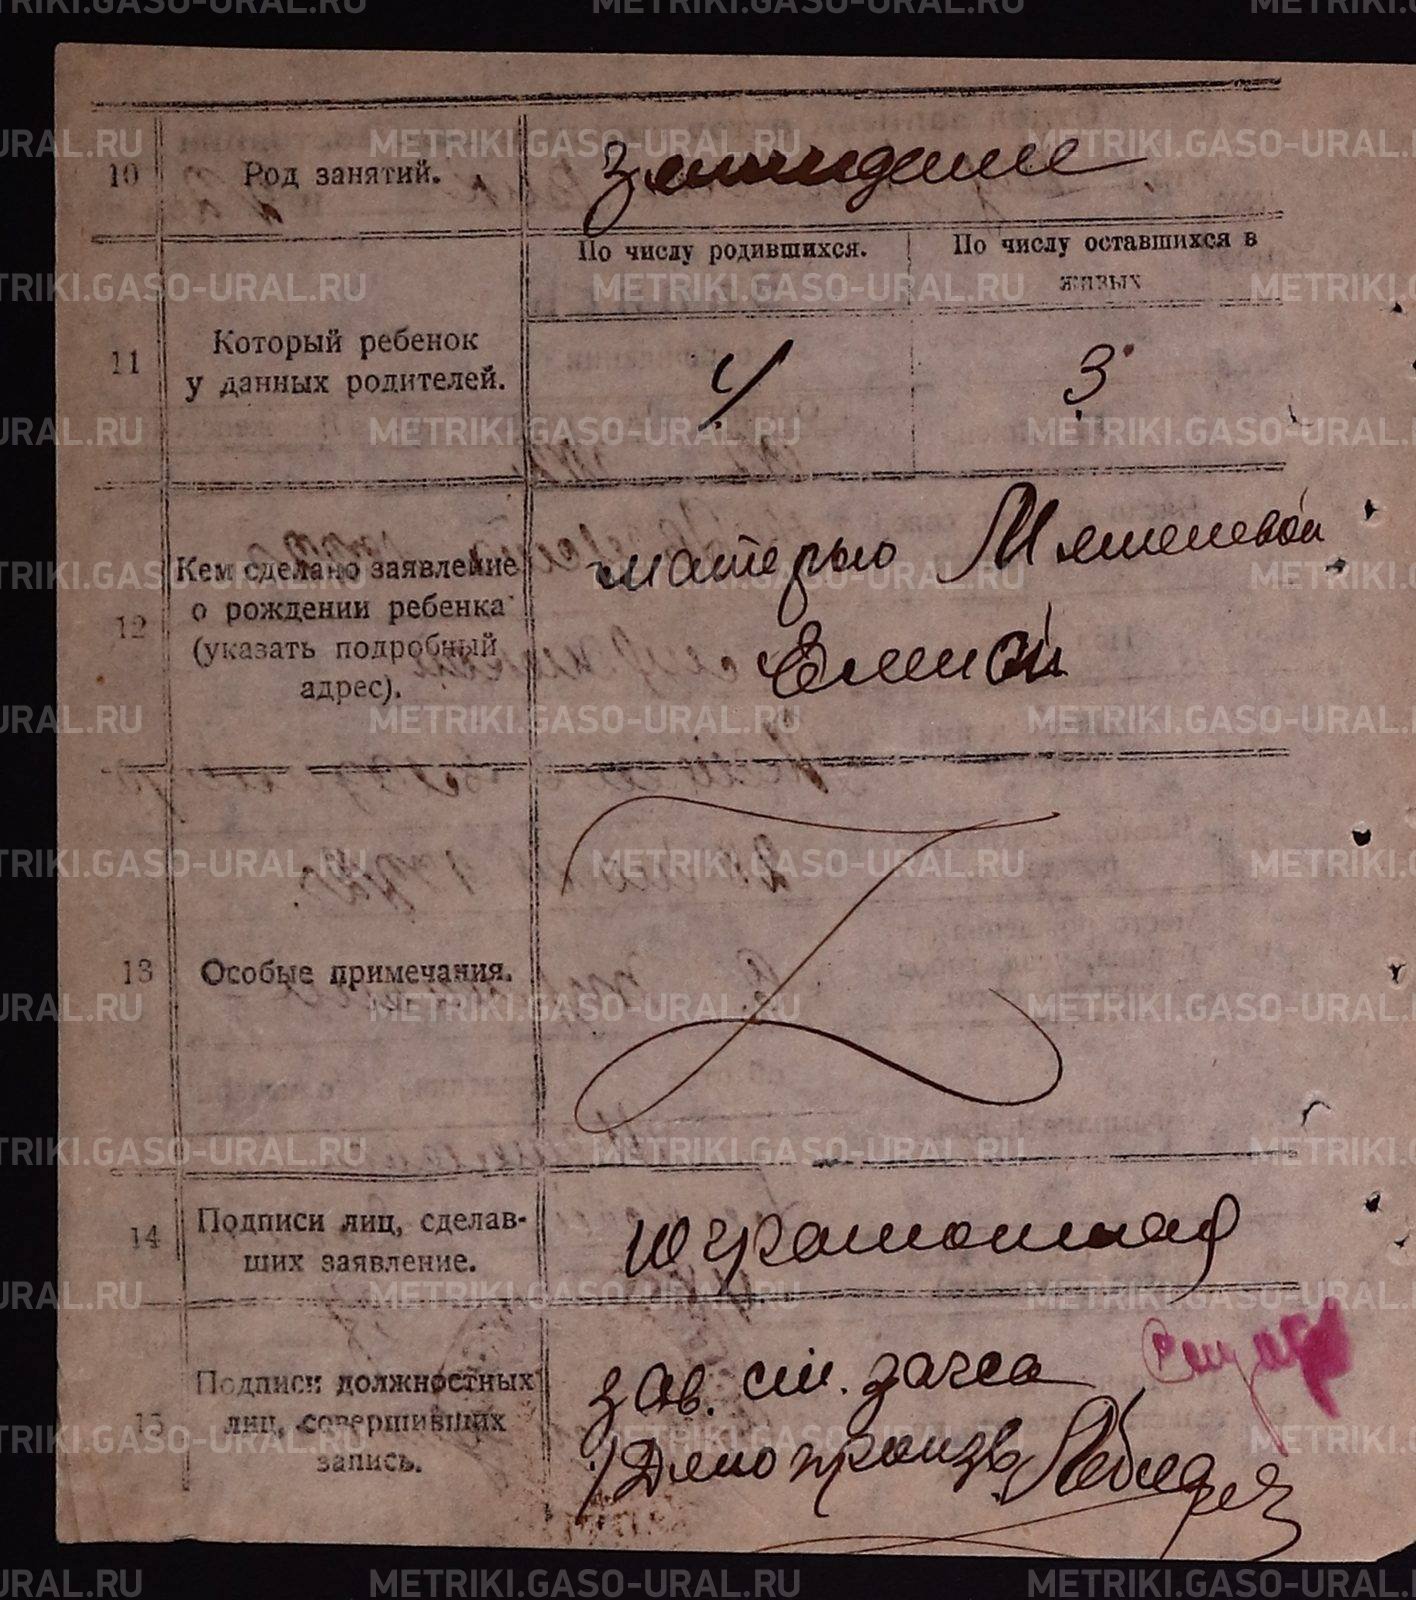 10 Род занятий.
11 Который ребенок
у данных родителей.
По числу родившихся.
По числу оставшихся в
живых
4
3
12 Кем сделано заявление
о рождении ребенка
(указать подробный
адрес).
матерью
13 Особые примечания.
14 Подписи лиц, сделав-
ших заявление.
15 Подписи должностных
лиц, совершивших
запись.
зав. ст. загса
Делопроизв
METRIKI.GASO-URAL.RU